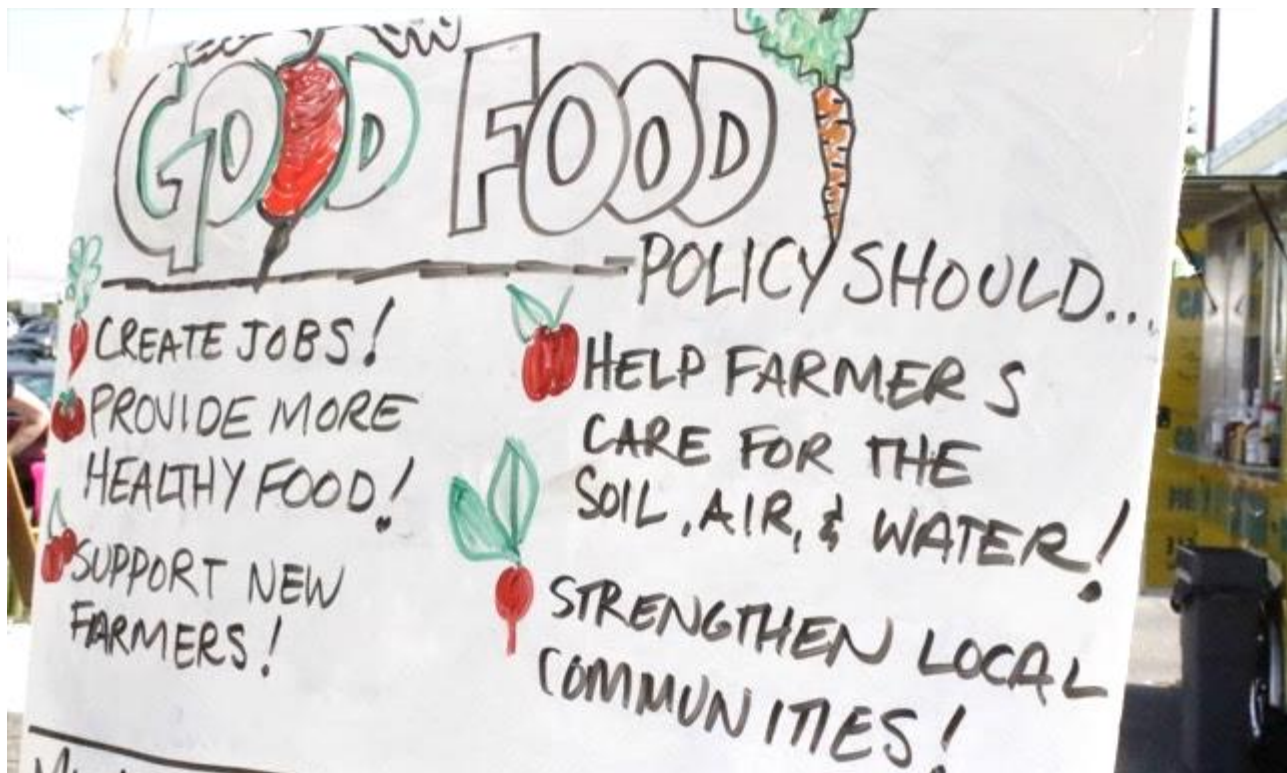 GOOD FOOD
POLICY SHOULD...
CREATE JOBS!
PROVIDE MORE
HEALTHY FOOD!
SUPPORT NEW
FARMERS!
HELP FARMERS
CARE FOR THE
SOIL, AIR, & WATER!
STRENGTHEN LOCAL
COMMUNITIES!